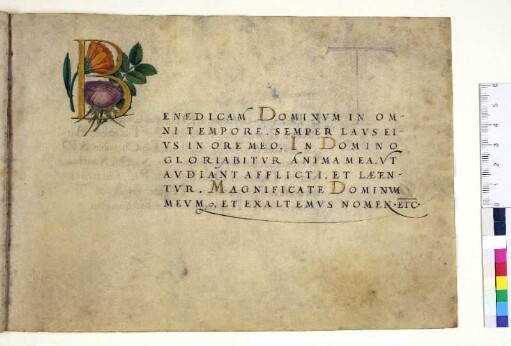 B
T
ENEDICAM DOMINVM IN OM-
NI TEMPORE. SEMPER LAVS EI-
VS IN ORE MEO. IN DOMINO
GLORIABITVR ANIMA MEA. VT
AVDIANT AFFLICTI. ET LÆTEN-
TVR. MAGNIFICATE DOMINVM
MEVM, ET EXALTEMVS NOMEN. ETC.